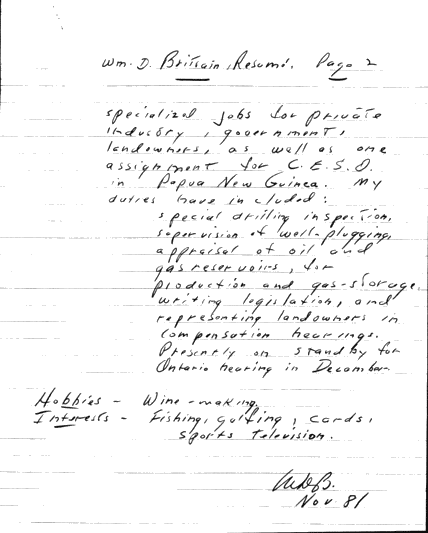 Wm. D. Brittain, Resumé. Page 2
specialized jobs for private
industry, government,
landowners, as well as one
assignment for C.E.S.O.
in Papua New Guinea. My
duties have included:
special drilling inspection,
supervision of well-plugging,
appraisal of oil and
gas reservoirs, for
production and gas-storage,
writing legislation, and
representing landowners in
compensation hearings.
Presently on standby for
Ontario hearing in December.
Hobbies - Wine-making.
Interests - Fishing, golfing, cards,
sports television.
WDB.
Nov 81